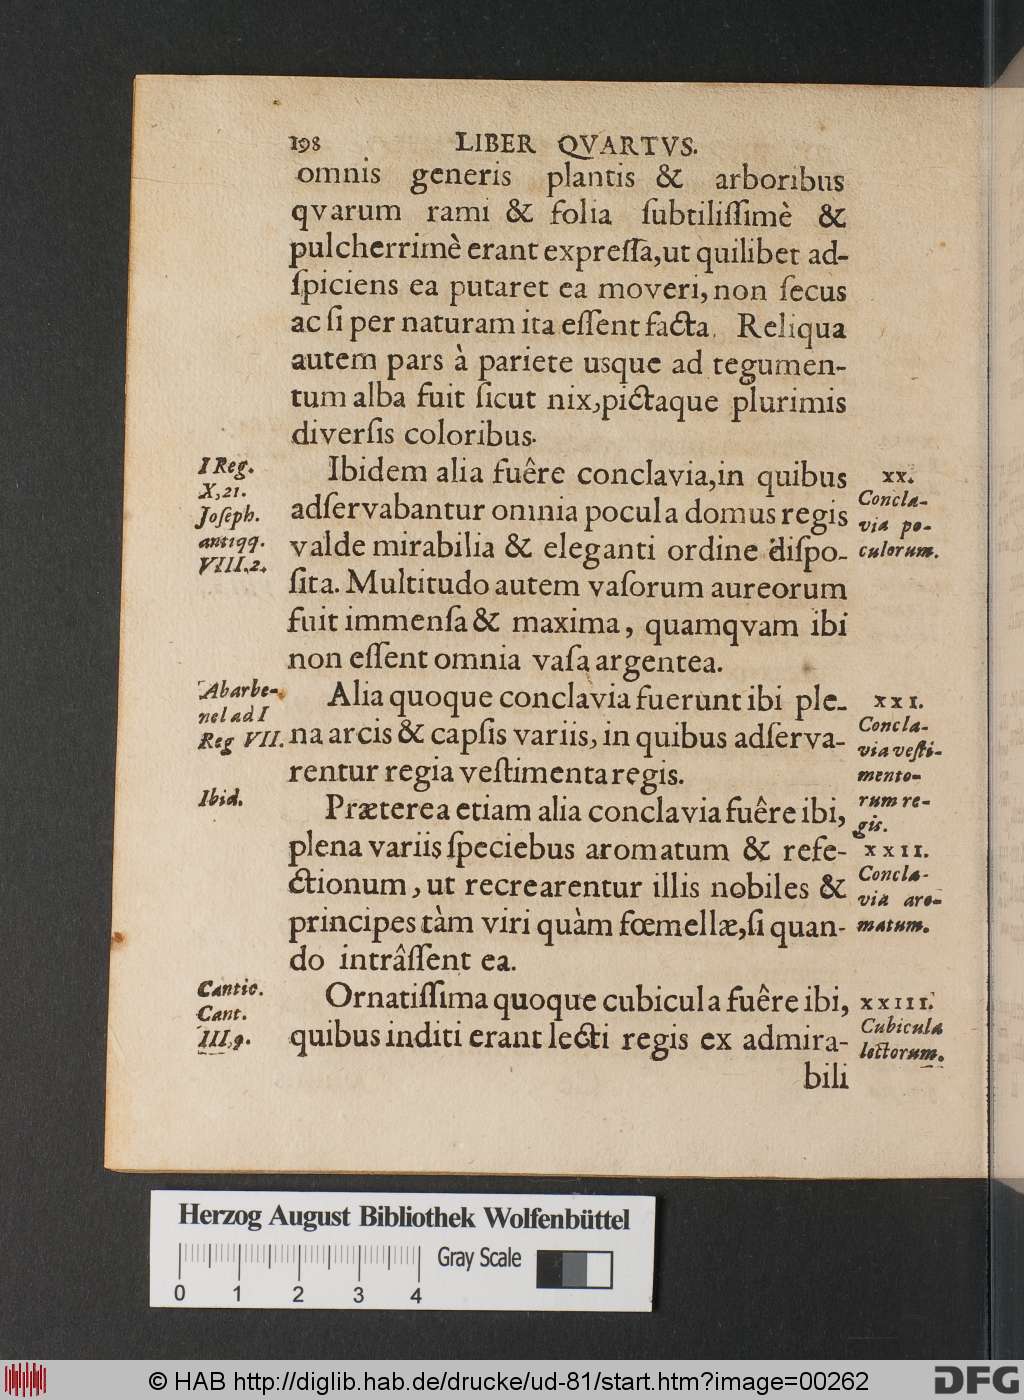 198 LIBER QVARTVS.
omnis generis plantis & arboribus
qvarum rami & folia ſubtiliſſimè &
pulcherrimè erant expreſſa,ut quilibet ad-
ſpiciens ea putaret ea moveri, non ſecus
ac ſi per naturam ita eſſent facta. Reliqua
autem pars à pariete usque ad tegumen-
tum alba fuit ſicut nix,pictaque plurimis
diverſis coloribus.
I Reg.
X,21.
Joſeph.
antiqq.
VIII,2.
Ibidem alia fuêre conclavia,in quibus
adſervabantur omnia pocula domus regis
valde mirabilia & eleganti ordine diſpo-
ſita. Multitudo autem vaſorum aureorum
fuit immenſa & maxima, quamqvam ibi
non eſſent omnia vaſa argentea.
XX.
Concla-
via po-
culorum.
Abarbe-
nel ad I
Reg VII.
Alia quoque conclavia fuerunt ibi ple-
na arcis & capſis variis, in quibus adſerva-
rentur regia veſtimenta regis.
XXI.
Concla-
via veſti-
mento-
rum re-
gis.
Ibid.
Præterea etiam alia conclavia fuêre ibi,
plena variis ſpeciebus aromatum & refe-
ctionum, ut recrearentur illis nobiles &
principes tàm viri quàm fœmellæ,ſi quan-
do intrâſſent ea.
XXII.
Concla-
via aro-
matum.
Cantic.
Cant.
III,9.
Ornatiſſima quoque cubicula fuêre ibi,
quibus inditi erant lecti regis ex admira-
bili
XXIII.
Cubicula
lectorum.
Herzog August Bibliothek Wolfenbüttel
Gray Scale
0 1 2 3 4
© HAB http://diglib.hab.de/drucke/ud-81/start.htm?image=00262
DFG